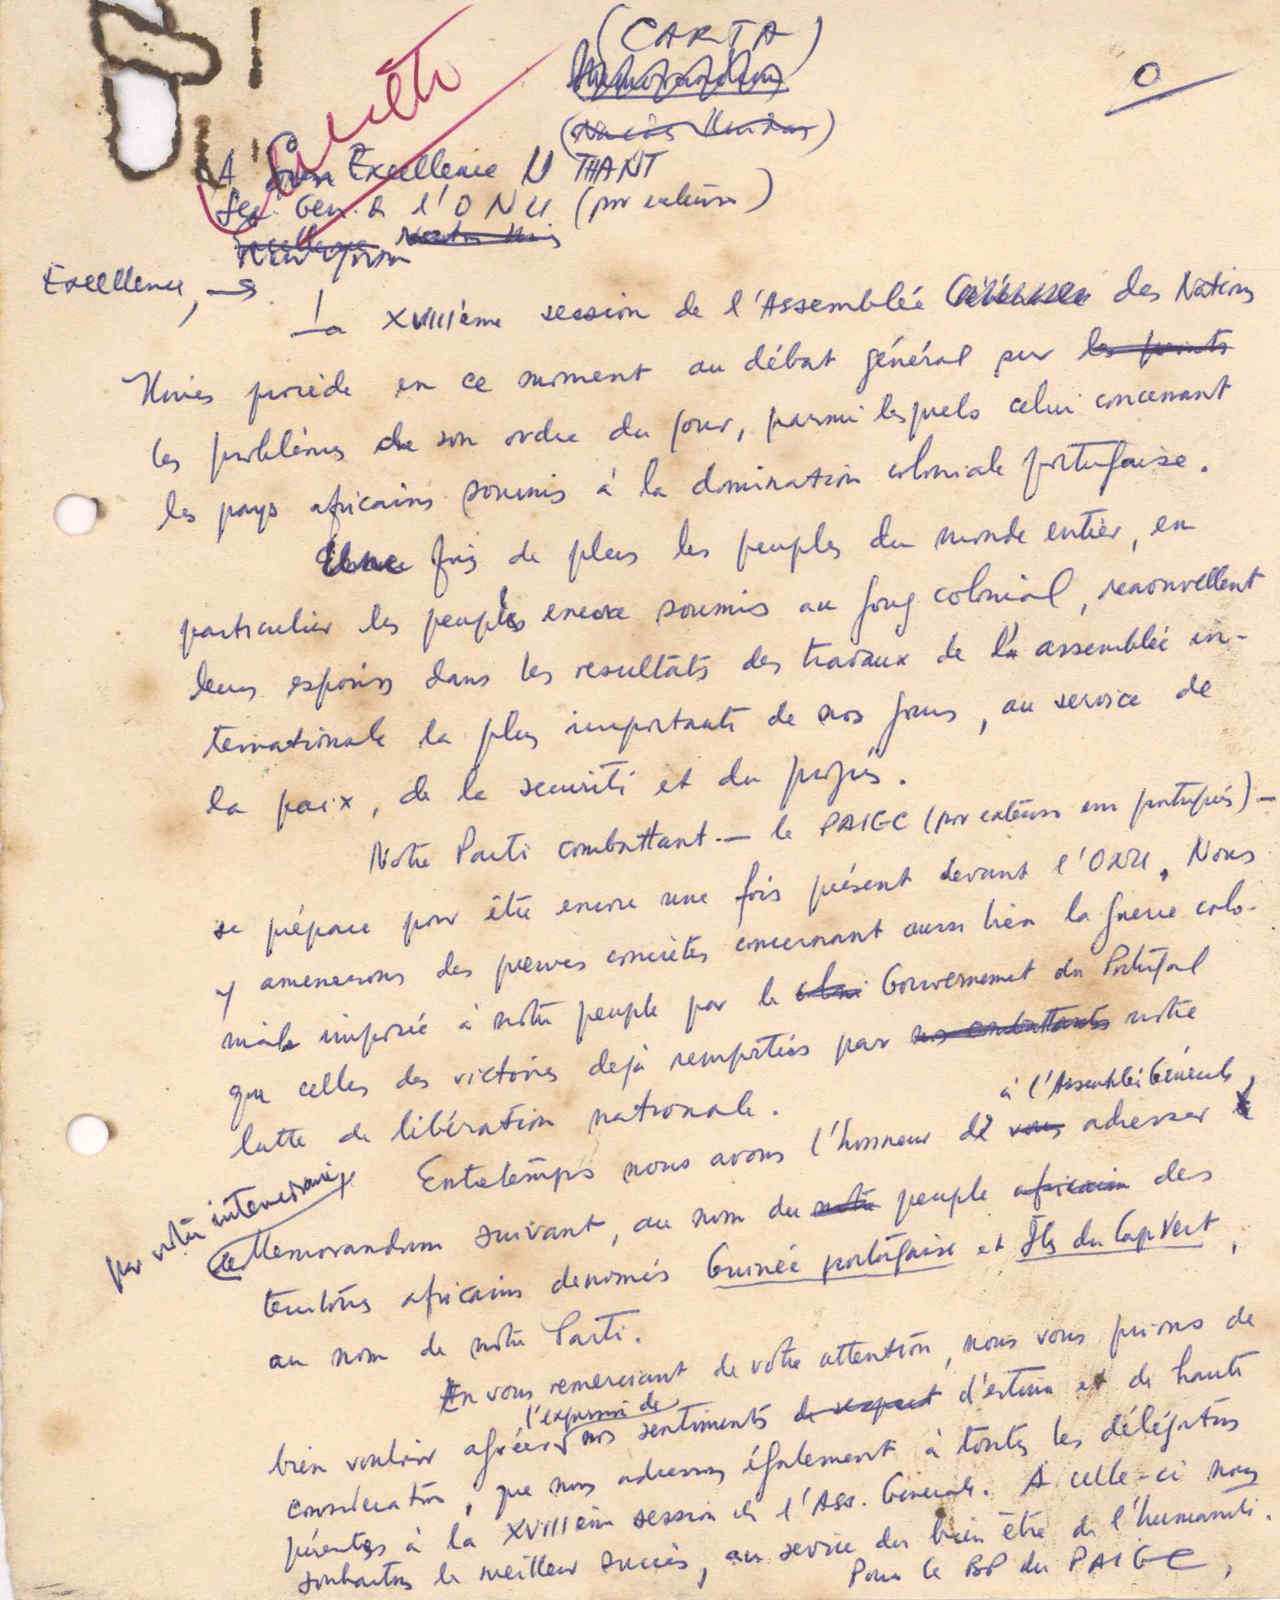 (CARTA)
Memorandum
(Nações Unidas)
O
A Son Excellence U THANT
Sec. Gen. de l'ONU (por extenso)
New York
Excellence, →
La XVIIIème session de l'Assemblée Générale des Nations
Unies procède en ce moment au débat général sur les points
les problèmes de son ordre du jour, parmi lesquels celui concernant
les pays africains soumis à la domination coloniale portugaise.
Une fois de plus les peuples du monde entier, en
particulier les peuples encore soumis au joug colonial, renouvellent
leurs espoirs dans les résultats des travaux de la assemblée in-
ternationale la plus importante de nos jours, au service de
la paix, de la sécurité et du progrès.
Notre Parti combattant — le PAIGC (por extenso em português) —
se prépare pour être encore une fois présent devant l'ONU. Nous
y amenerons des preuves concrètes concernant aussi bien la guerre colo-
niale imposée à notre peuple par le Gouvernement du Portugal
que celles des victoires déjà remportées par nos combattants notre
lutte de libération nationale.
à l'Assemblée Générale,
Entretemps nous avons l'honneur de vous adresser
par votre intermédiaire
le Memorandum suivant, au nom du notre peuple africain des
territoires africains denomés Guinée portugaise et Iles du Cap Vert,
au nom de notre Parti.
En vous remerciant de votre attention, nous vous prions de
l'expression de
bien vouloir agréer nos sentiments de respect d'estime et de haute
considération, que nous adressons également à toutes les délégations
présentes à la XVIIIème session de l'Ass. Générale. A celle-ci nous
souhaitons le meilleur succès, au service du bien être de l'humanité.
Pour le BP du PAIGC,